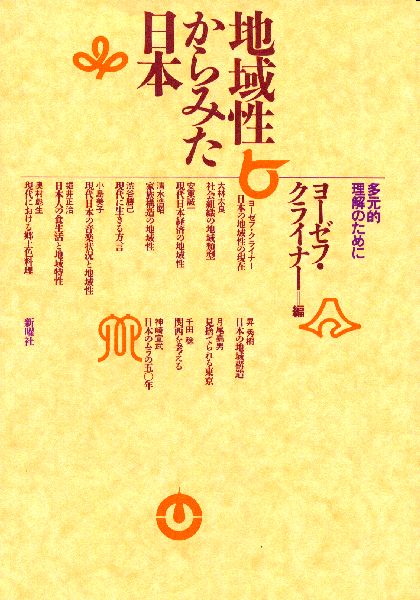 地域性
からみた
日本
多元的
理解のために
ヨーゼフ・
クライナー＝編
ヨーゼフ・クライナー
日本の地域性の現在
大林太良
社会組織の地域類型
安東誠一
現代日本経済の地域性
清水浩昭
家族構造の地域性
渋谷勝己
現代に生きる方言
小島美子
現代日本の音楽状況と地域性
石毛直道
日本人の食生活と地域特性
奥村彪生
現代における郷土色料理
昇 秀樹
日本の地域構造
月尾嘉男
見捨てられる東京
千田 稔
関西を考える
神崎宣武
日本のムラの五〇年
新曜社